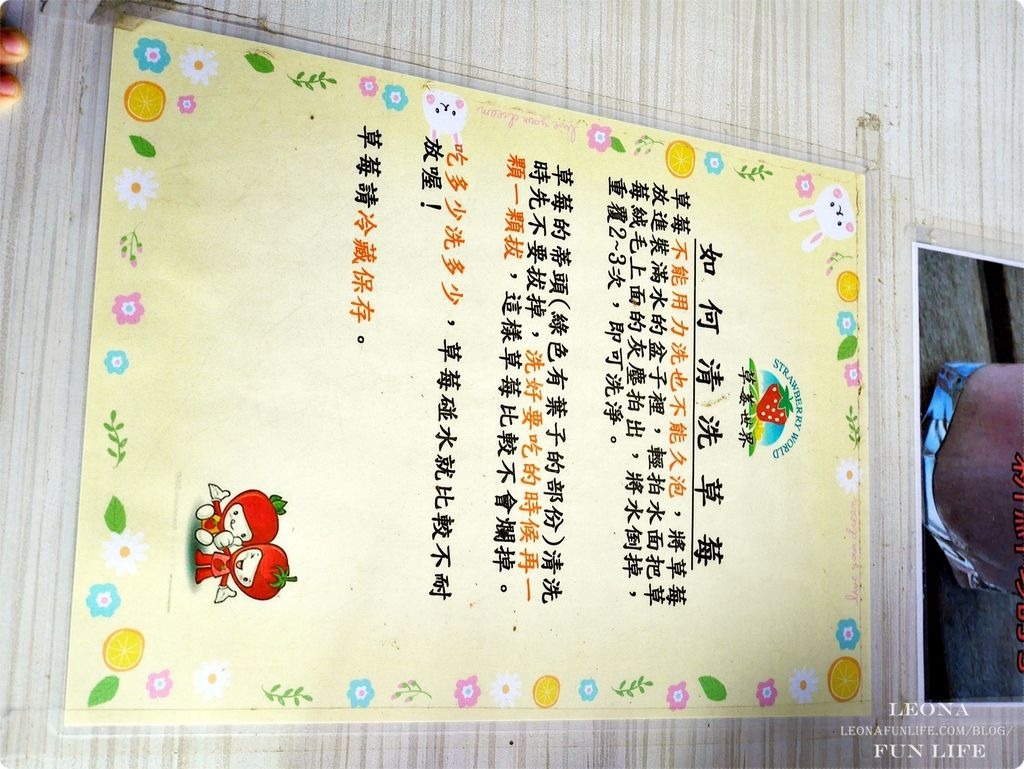 STRAWBERRY WORLD
草莓世界
如何清洗草莓
草莓不能用力洗也不能久泡，將草莓
放進裝滿水的盆子裡，輕拍水面把草
莓絨毛上面的灰塵拍出，將水倒掉，
重覆2~3次，即可洗淨。
草莓的蒂頭(綠色有葉子的部份)清洗
時先不要拔掉，洗好要吃的時候再一
顆一顆拔，這樣草莓比較不會爛掉。
吃多少洗多少，草莓碰水就比較不耐
放喔！
草莓請冷藏保存。
live your dream
live your dream
LEONA
LEONAFUNLIFE.COM/BLOG/
FUN LIFE